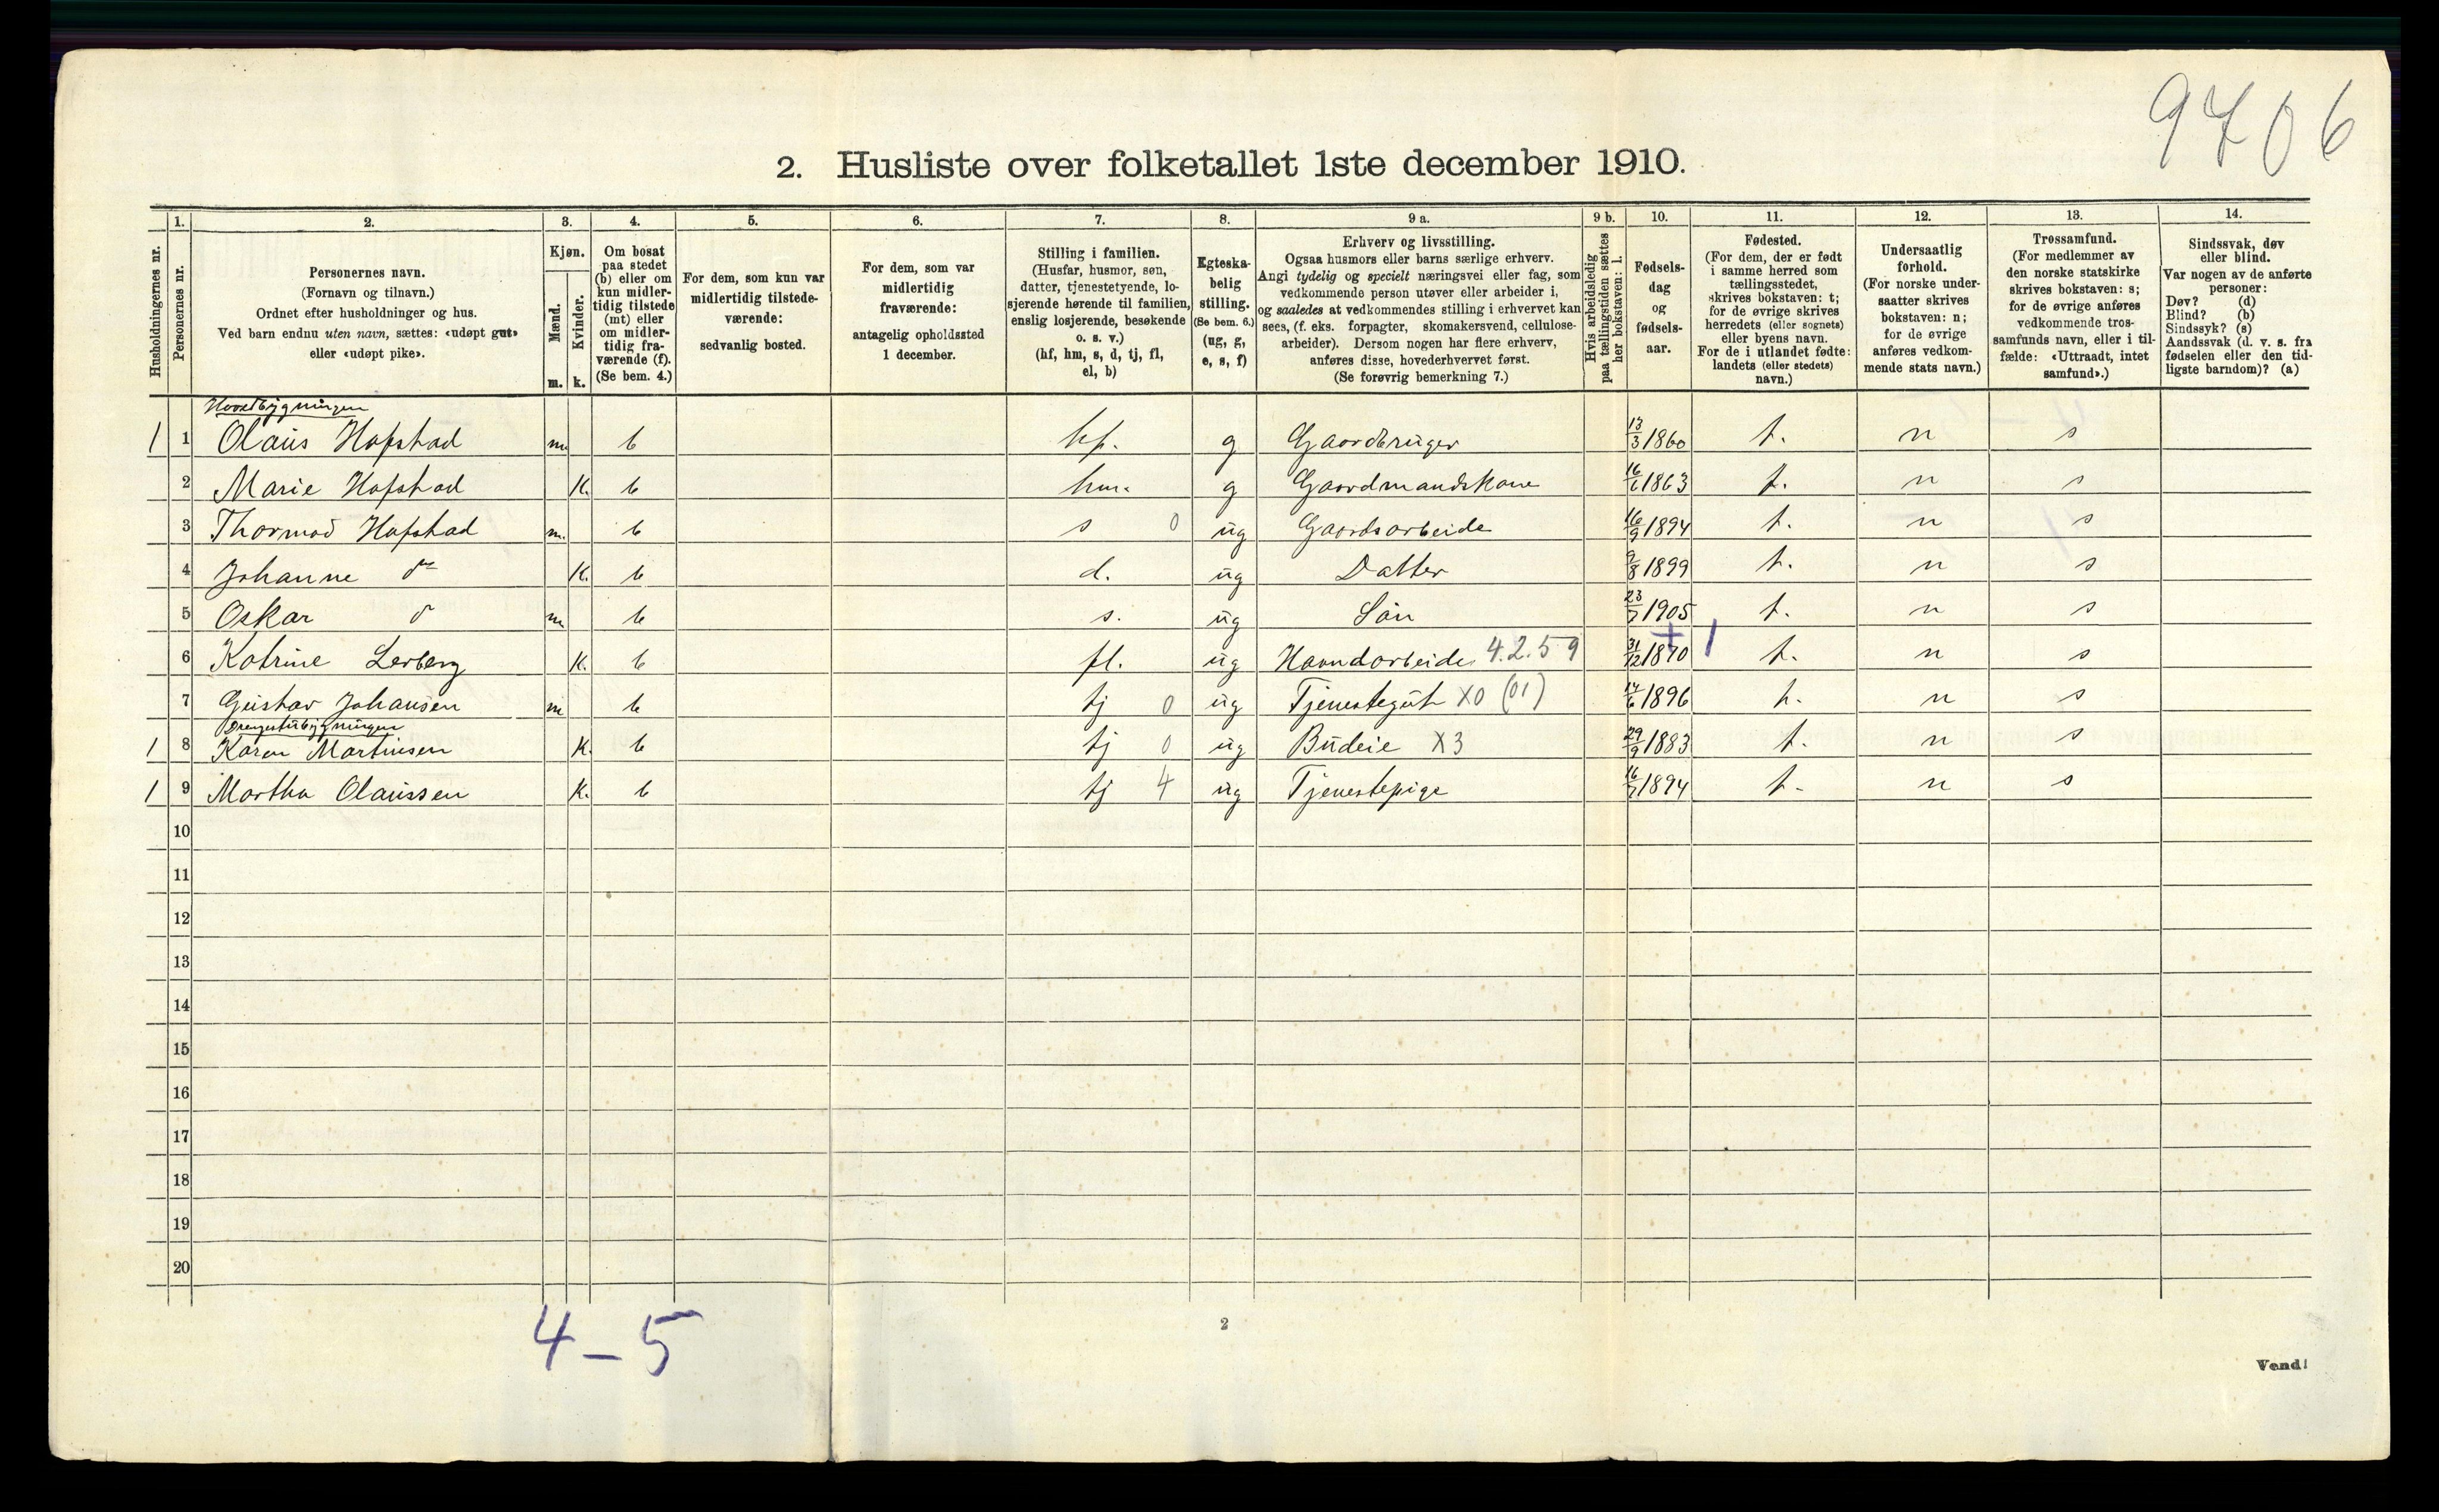 9706
2. Husliste over folketallet 1ste december 1910.
Husholdningernes nr.
1. Personernes nr.
2. Personernes navn. (Fornavn og tilnavn.) Ordnet efter husholdninger og hus. Ved barn endnu uten navn, sættes: «udøpt gut» eller «udøpt pike».
3. Kjøn. Mænd. m. Kvinder. k.
4. Om bosat paa stedet (b) eller om kun midlertidig tilstede (mt) eller om midlertidig fraværende (f). (Se bem. 4.)
5. For dem, som kun var midlertidig tilstedeværende: sedvanlig bosted.
6. For dem, som var midlertidig fraværende: antagelig opholdssted 1 december.
7. Stilling i familien. (Husfar, husmor, søn, datter, tjenestetyende, losjerende hørende til familien, enslig losjerende, besøkende o. s. v.) (hf, hm, s, d, tj, fl, el, b)
8. Egteskabelig stilling. (Se bem. 6.) (ug, g, e, s, f)
9 a. Erhverv og livsstilling. Ogsaa husmors eller barns særlige erhverv. Angi tydelig og specielt næringsvei eller fag, som vedkommende person utøver eller arbeider i, og saaledes at vedkommendes stilling i erhvervet kan sees, (f. eks. forpagter, skomakersvend, cellulosearbeider). Dersom nogen har flere erhverv, anføres disse, hovederhvervet først. (Se forøvrig bemerkning 7.)
9 b. Hvis arbeidsledig paa tællingstiden sættes her bokstaven: l.
10. Fødselsdag og fødselsaar.
11. Fødested. (For dem, der er født i samme herred som tællingsstedet, skrives bokstaven: t; for de øvrige skrives herredets (eller sognets) eller byens navn. For de i utlandet fødte: landets (eller stedets) navn.)
12. Undersaatlig forhold. (For norske undersaatter skrives bokstaven: n; for de øvrige anføres vedkommende stats navn.)
13. Trossamfund. (For medlemmer av den norske statskirke skrives bokstaven: s; for de øvrige anføres vedkommende trossamfunds navn, eller i tilfælde: «Uttraadt, intet samfund».)
14. Sindssvak, døv eller blind. Var nogen av de anførte personer: Døv? (d) Blind? (b) Sindssyk? (s) Aandssvak (d. v. s. fra fødselen eller den tidligste barndom)? (a)
Hovedbygningen
1 1 Olaus Hofstad m. b hf. g Gaardbruger 13/3 1860 t. n s
2 Marie Hofstad K. b hm. g Gaardmandskone 16/6 1863 t. n s
3 Thormod Hofstad m. b s 0 ug Gaardsarbeide 16/9 1894 t. n s
4 Johanne do K. b d. ug Datter 9/8 1899 t. n s
5 Oskar do m b s. ug Søn 23/7 1905 t. n s
6 Katrine Lerberg K. b fl. ug Haandarbeide 4.2.59 31/12 1870 + 1 t. n s
7 Gustav Johansen m b tj 0 ug Tjenestegut X0 (01) 14/6 1896 t. n s
Drengestubygningen
1 8 Karen Martinsen K. b tj 0 ug Budeie X3 29/9 1883 t. n s
1 9 Martha Olaussen K. b tj 4 ug Tjenestepige 16/7 1894 t. n s
10
11
12
13
14
15
16
17
18
19
20
4 – 5
2
Vend!